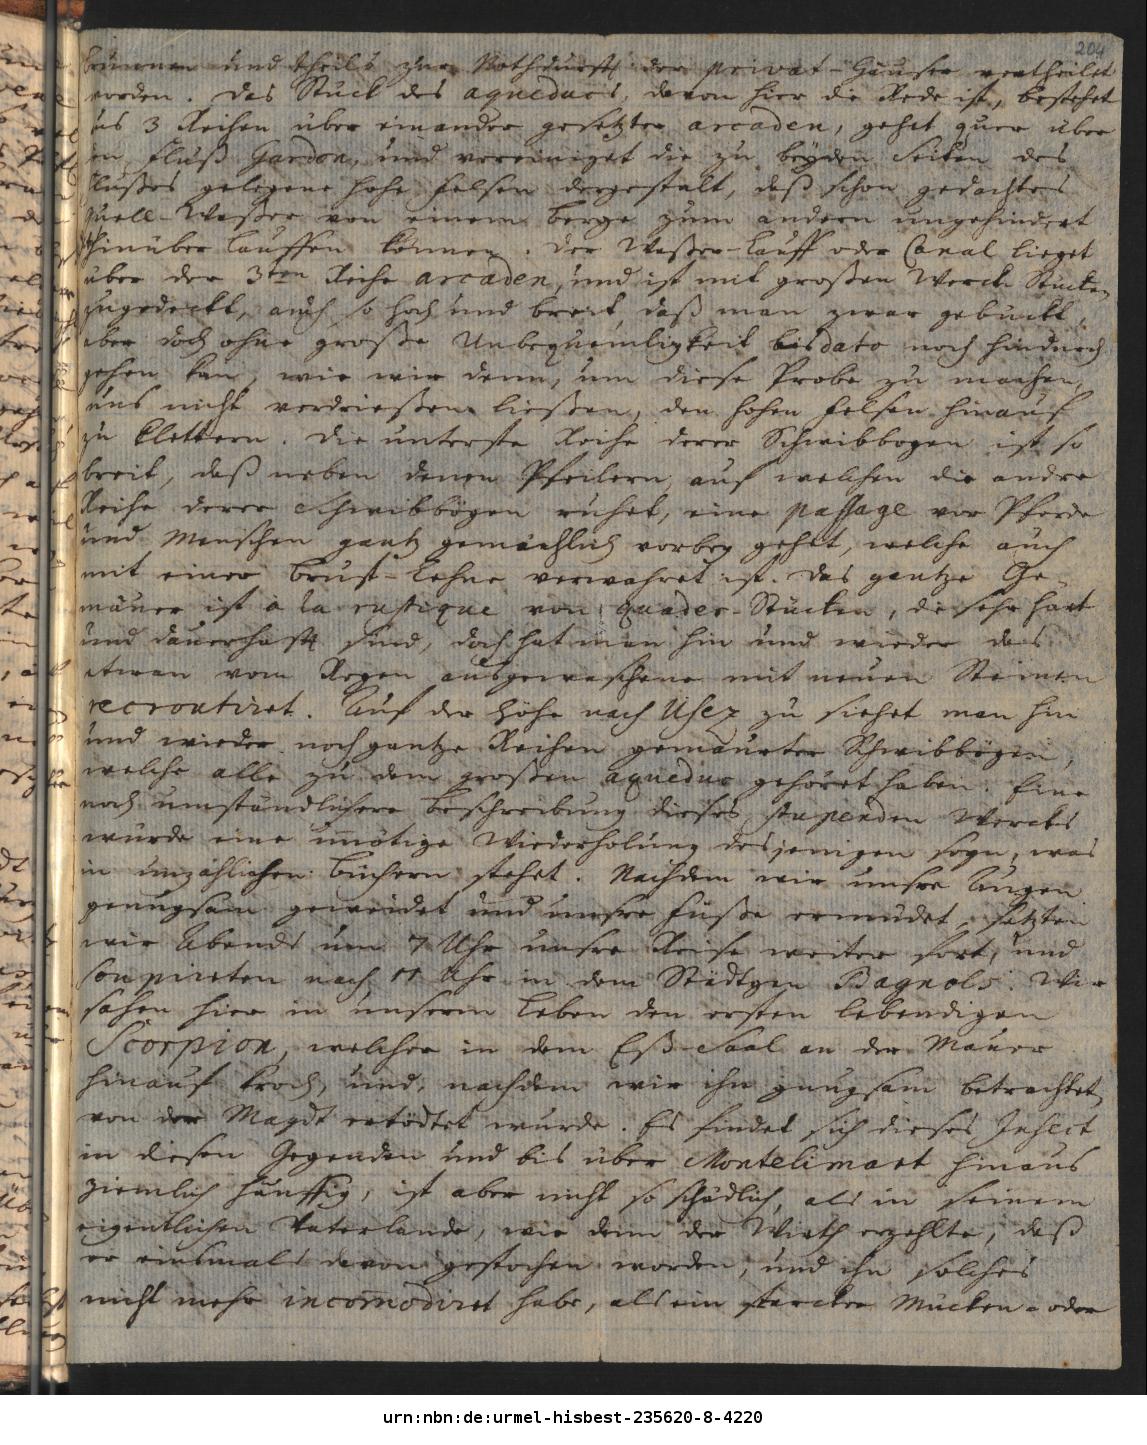 204
brunnen und theils zur Nothdurfft der privat-Häuser vertheilet
worden. Das Stück des aqueducs, davon hier die Rede ist, bestehet
aus 3 Reihen über einander gesetzter arcaden, gehet quer über
den Fluß Gardon, und vereiniget die zu beyden Seiten des
Flußes gelegene hohe Felsen dergestalt, daß schon gedachtes
Quell-Waßer von einem Berge zum andern ungehindert
hinüber lauffen können. Der Waßer-Lauff oder Canal lieget
über der 3ten Reihe arcaden, und ist mit großen Werck-Stücken
zugedeckt, auch so hoch und breit, daß man zwar gebückt,
aber doch ohne große Unbequemligkeit bis dato noch hindurch
gehen kan, wie wir denn, um diese Probe zu machen,
uns nicht verdrießen ließen, den hohen Felsen hinauf
zu klettern. Die unterste Reihe derer Schwibbogen ist so
breit, daß neben denen Pfeilern, auf welchen die andre
Reihe derer Schwibbögen ruhet, eine passage vor Pferde
und Menschen gantz gemächlich vorbey gehet, welche auch
mit einer Brust-Lehne verwahret ist. Das gantze Ge-
mäuer ist à la rustique von quader-Stücken, die sehr hart
und dauerhafft sind, doch hat man hin und wieder das
etwan vom Regen ausgewaschene mit neuen Steinen
recroutiret. Auf der Höhe nach Usez zu siehet man hin
und wieder noch gantze Reihen gemäurter Schwibbögen,
welche alle zu dem großen aqueduc gehöret haben. Eine
noch umständlichere Beschreibung dieses stupenden Wercks
würde eine unnötige Wiederholung desjenigen seyn, was
in unzählichen Büchern stehet. Nachdem wir unsre Augen
genugsam geweidet und unsre Füße ermüdet, setzten
wir Abends um 7 Uhr unsre Reise weiter fort, und
soupireten nach 11 Uhr in dem Städtgen Bagnols. Wir
sahen hier in unserm Leben den ersten lebendigen
Scorpion, welcher in dem Eß-Saal an der Mauer
hinauf kroch, und, nachdem wir ihn gnugsam betrachtet,
von der Magdt ertödtet wurde. Es findet sich dieses Insect
in diesen Gegenden und bis über Montelimart hinaus
ziemlich häuffig, ist aber nicht so schädlich, als in seinem
eigentlichen Vaterlande, wie denn der Wirth erzehlte, daß
er einsmals davon gestochen worden, und ihn solches
nicht mehr incommodiret habe, als ein starcker Mücken- oder
urn:nbn:de:urmel-hisbest-235620-8-4220